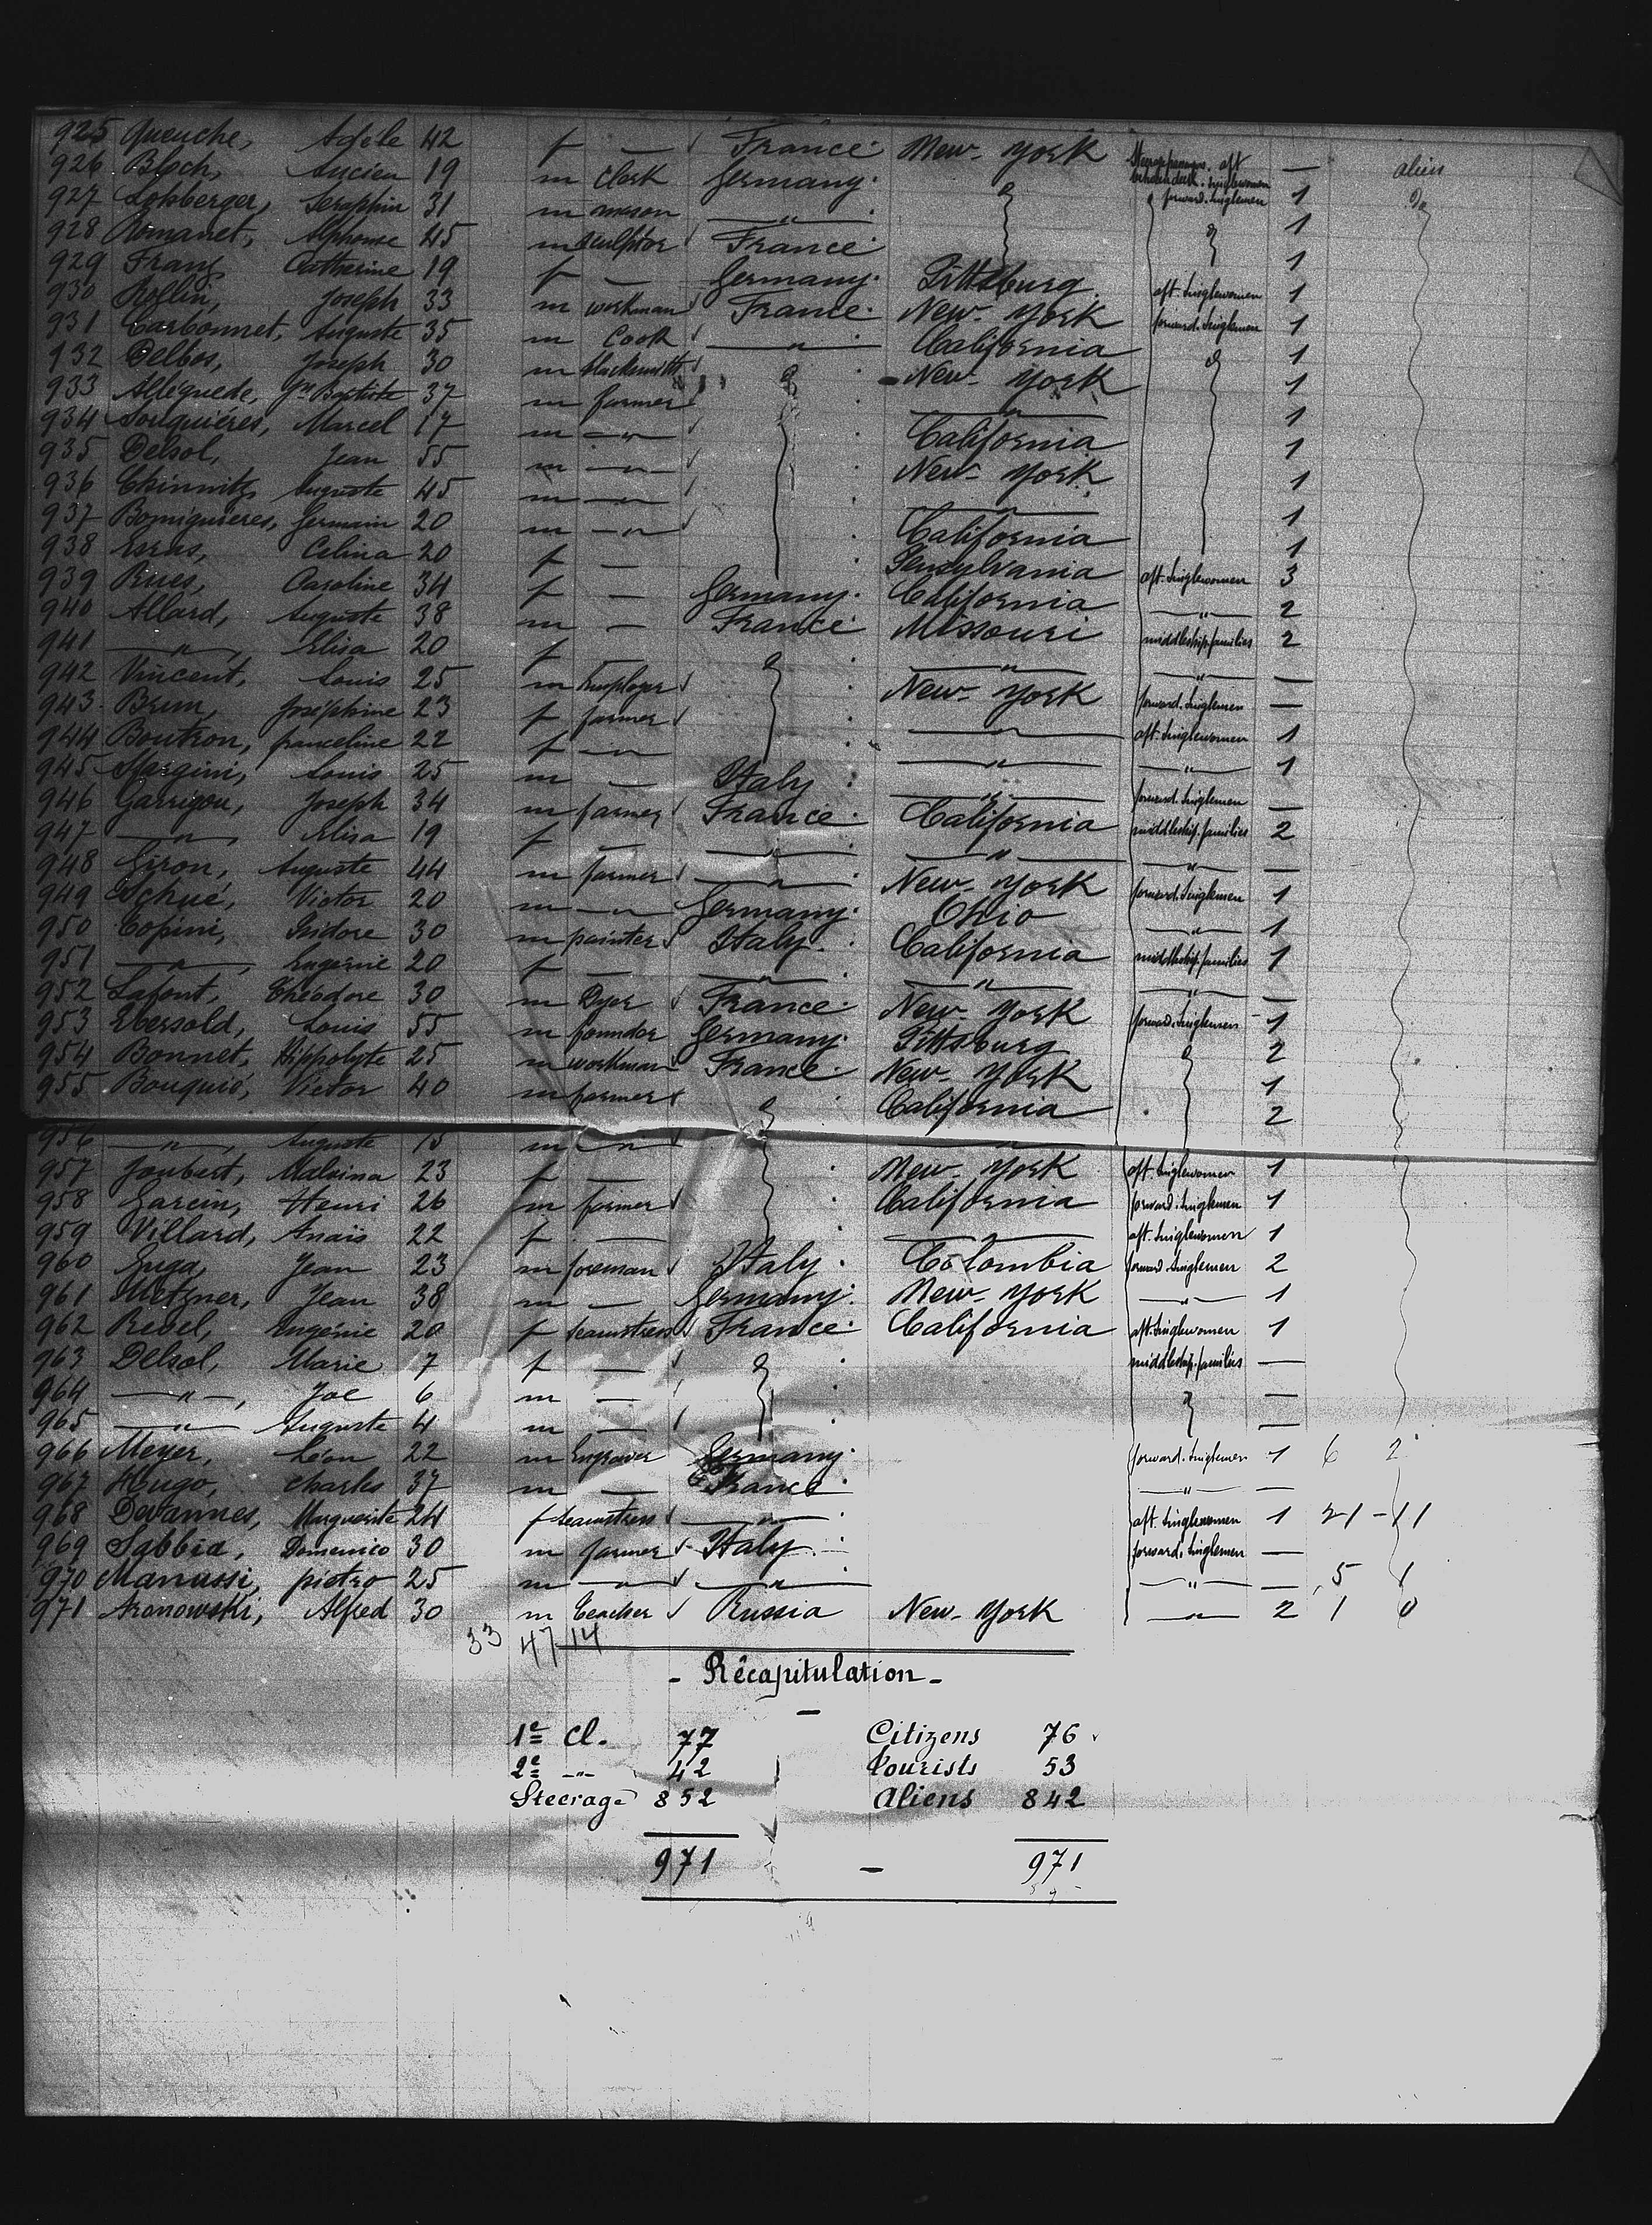 925 Queuche, Adèle 42 f — France New-York Steerage aft — alien
926 Bloch, Lucien 19 m Clerk Germany forward. Singlemen 1 do
927 Loksberger, Seraphin 31 m mason —"— 1
928 Romanet, Alphonse 45 m sculptor France 1
929 Franz Catherine 19 f — Germany Pittsburg aft. Singlewomen 1
930 Rollin, Joseph 33 m workman France New-York forward. Singlemen 1
931 Carbonnet, Auguste 35 m Cook —"— California 1
932 Delbos, Joseph 30 m blacksmith New-York 1
933 Alleguede, Jn Baptiste 37 m farmer —"— 1
934 Souquiéres, Marcel 17 m —"— California 1
935 Delsol, Jean 55 m —"— New-York 1
936 Chinnitz Auguste 45 m —"— —"— 1
937 Bomiguieres, Germain 20 m —"— California 1
938 Esens, Celina 20 f — Pensylvania aft. Singlewomen 3
939 Rues, Caroline 34 f — Germany California —"— 2
940 Allard, Auguste 38 m — France Missouri middleship. families 2
941 —"—, Elisa 20 f — —"— —"— —
942 Vincent, Louis 25 m Employer New-York forward. Singlemen —
943 Brun, Joséphine 23 f farmer —"— aft. Singlewomen 1
944 Boutron, franceline 22 f —"— —"— —"— 1
945 Margini, Louis 25 m — Italy —"— forward. Singlemen —
946 Garrigou, Joseph 34 m farmer France California middleship. families 2
947 —"—, Elisa 19 f — —"— —"— —"— —
948 Giron, Auguste 44 m farmer —"— New-York forward. Singlemen 1
949 Schué, Victor 20 m —"— Germany Ohio —"— 1
950 Copini, Isidore 30 m painter Italy California middleship. families 1
951 —"—, Eugénie 20 f — —"— —"— —"— —
952 Lafont, Théodore 30 m Dyer France New-York forward. Singlemen 1
953 Ebersold, Louis 55 m foundor Germany Pittsburg 2
954 Bonnet, Hippolyte 25 m workman France New-York 1
955 Bouquié, Victor 40 m farmer California 2
956 —"—, Auguste m —"— —"—
957 Joubert, Malvina 23 f — New-York aft. Singlewomen 1
958 Garcin, Henri 26 m farmer California forward. Singlemen 1
959 Villard, Anaïs 22 f — —"— aft. Singlewomen 1
960 Guga, Jean 23 m foreman Italy Colombia forward. Singlemen 2
961 Metzner, Jean 38 m — Germany New-York —"— 1
962 Rebel, Eugénie 20 f seamstress France California aft. Singlewomen 1
963 Delsol, Marie 7 f — middleship. families —
964 —"—, Joe 6 m — —
965 —"— Auguste 4 m — —
966 Meyer, Léon 22 m Engraver Germany forward. Singlemen 1 6 2
967 Hugo, Charles 37 m — France —"— —
968 Devannes, Marguerite 24 f seamstress —"— aft. Singlewomen 1 21 - 11
969 Sabbia, Domenico 30 m farmer Italy forward. Singlemen —
970 Manussi, pietro 25 m —"— —"— —"— — 5 1
971 Aronowski, Alfred 30 m teacher Russia New-York —"— 2 1 0
33 47 14
- Récapitulation -
1e Cl. 77 Citizens 76
2e -"- 42 tourists 53
Steerage 852 aliens 842
971 — 971